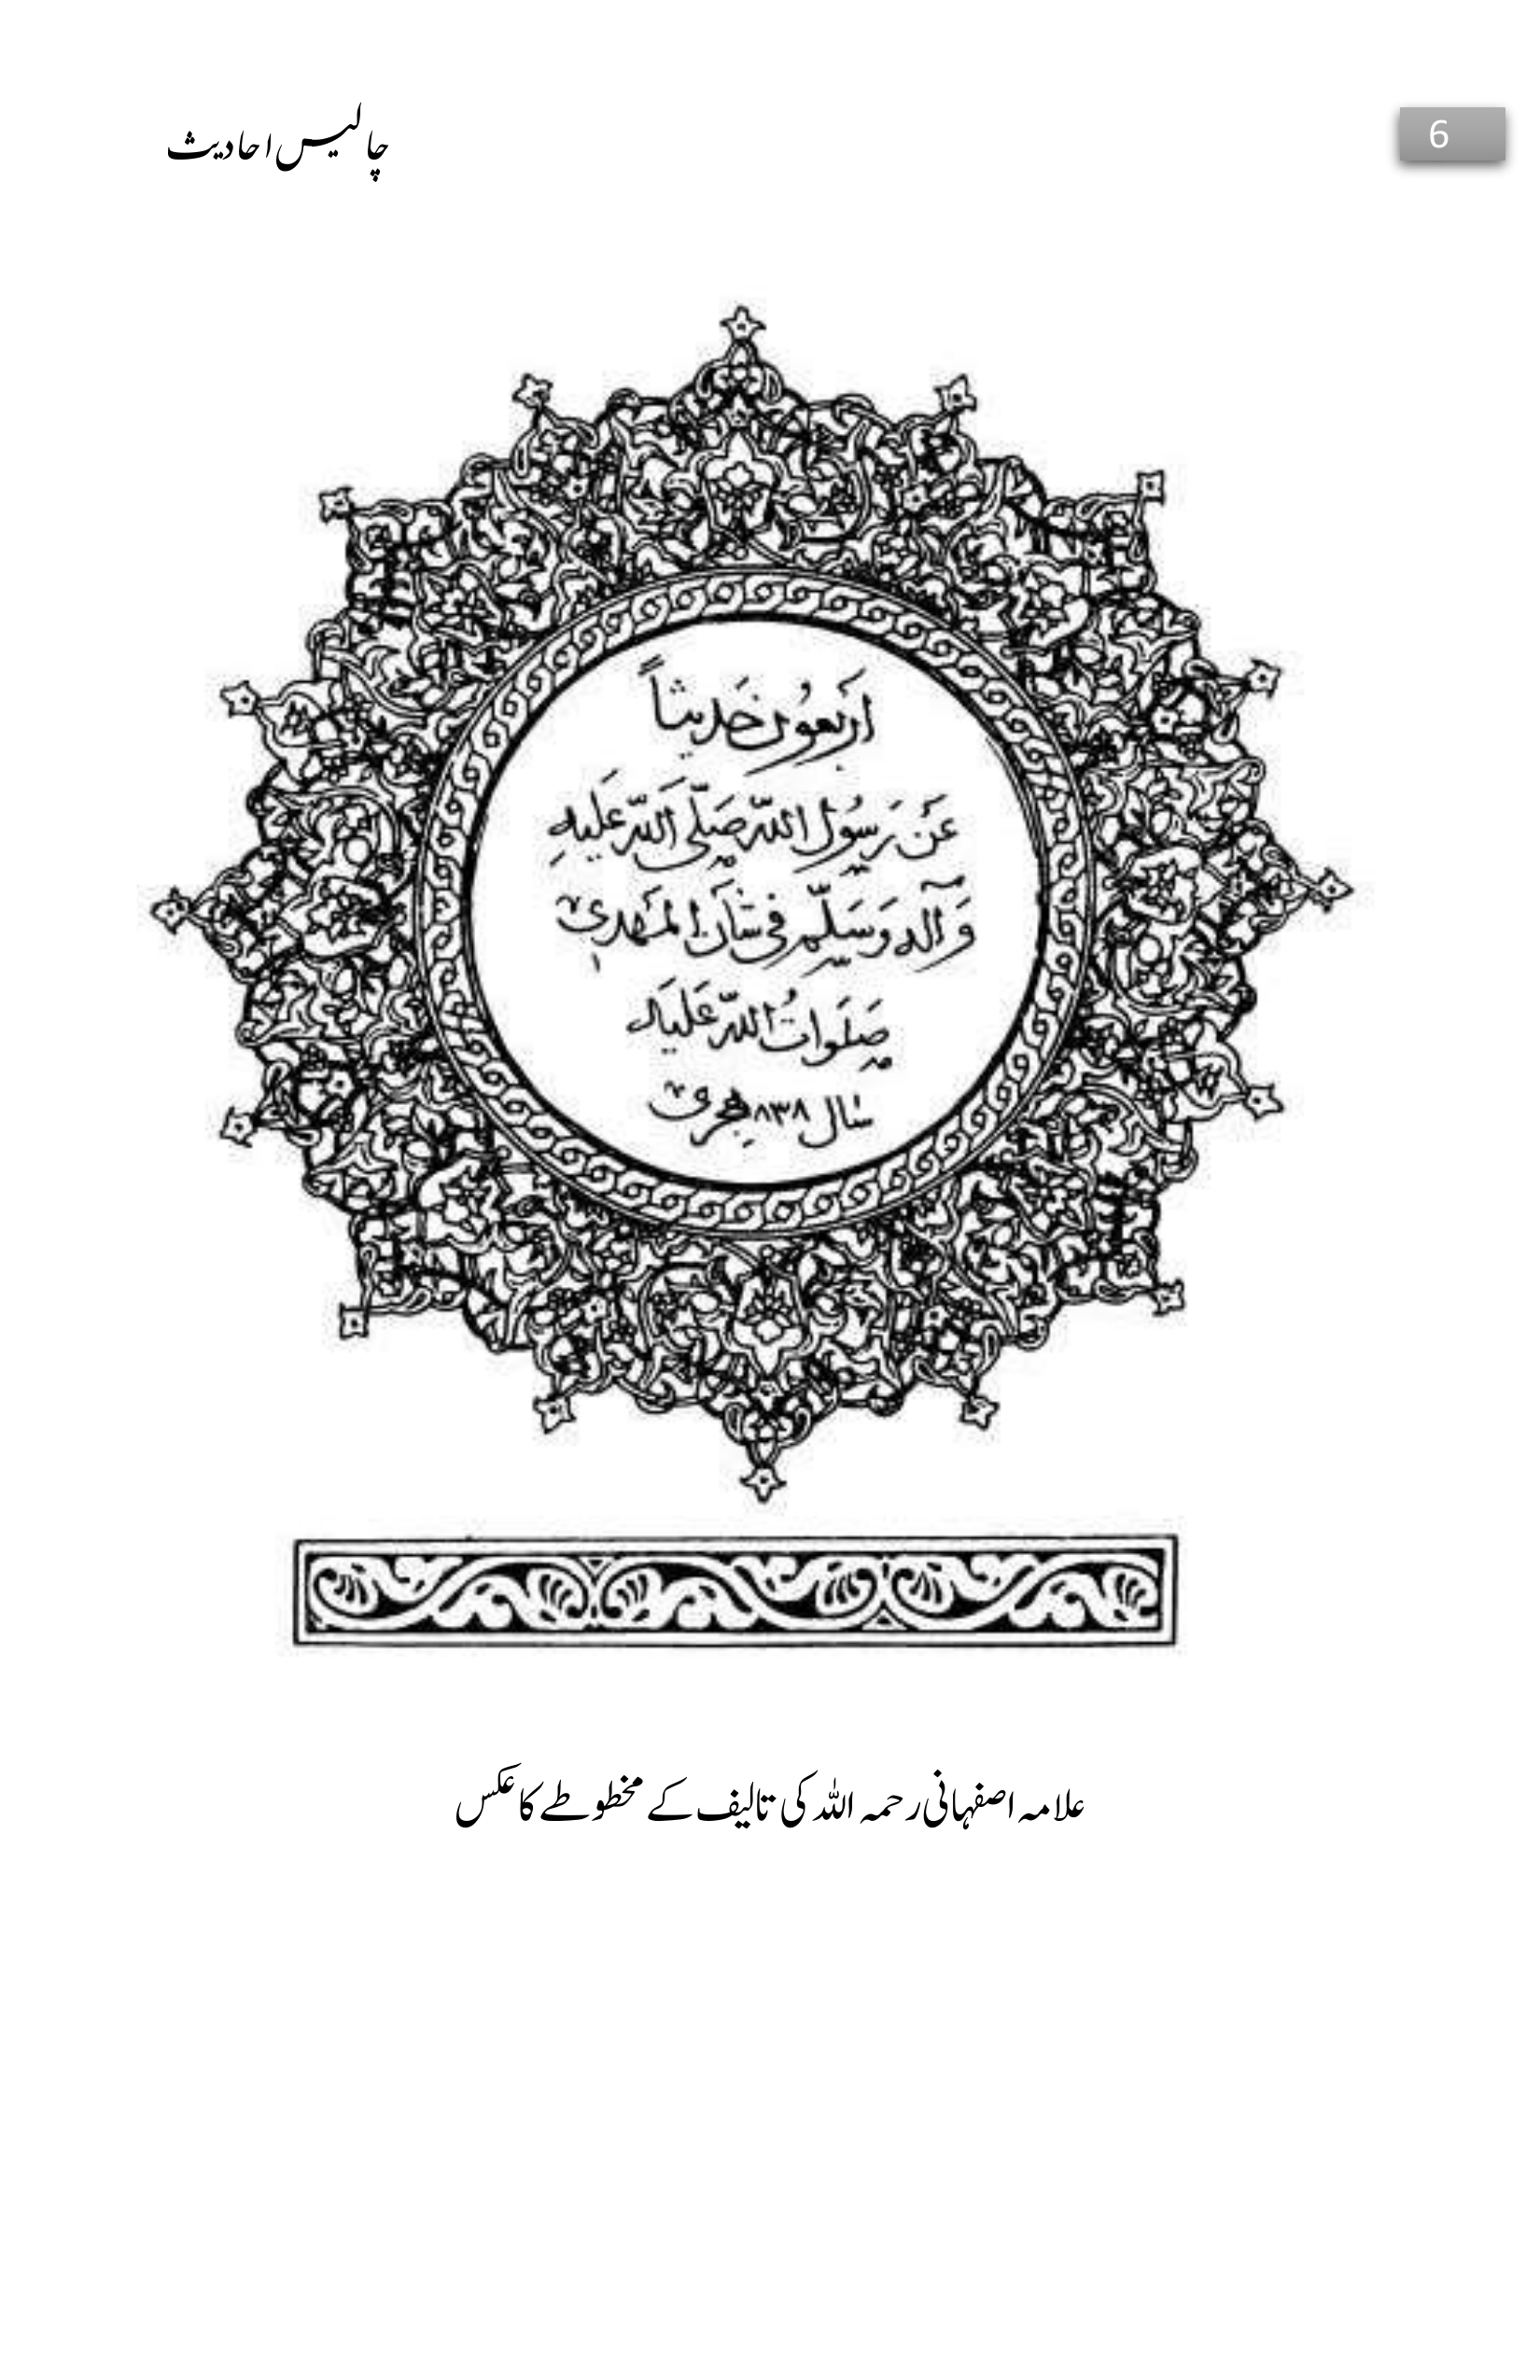 چالیس احادیث
6
اَرْبَعُونَ حَدِيثاً
عَن رَسُولِ اللهِ صَلَّى اللهُ عَلَيهِ
وَآلِهِ وَسَلَّم فِي شَأنِ المَهدِي
صَلَوَاتُ اللهِ عَلَيهِ
سال ۸۳۸ هجری
علامہ اصفہانی رحمہ اللہ کی تالیف کے مخطوطے کا عکس